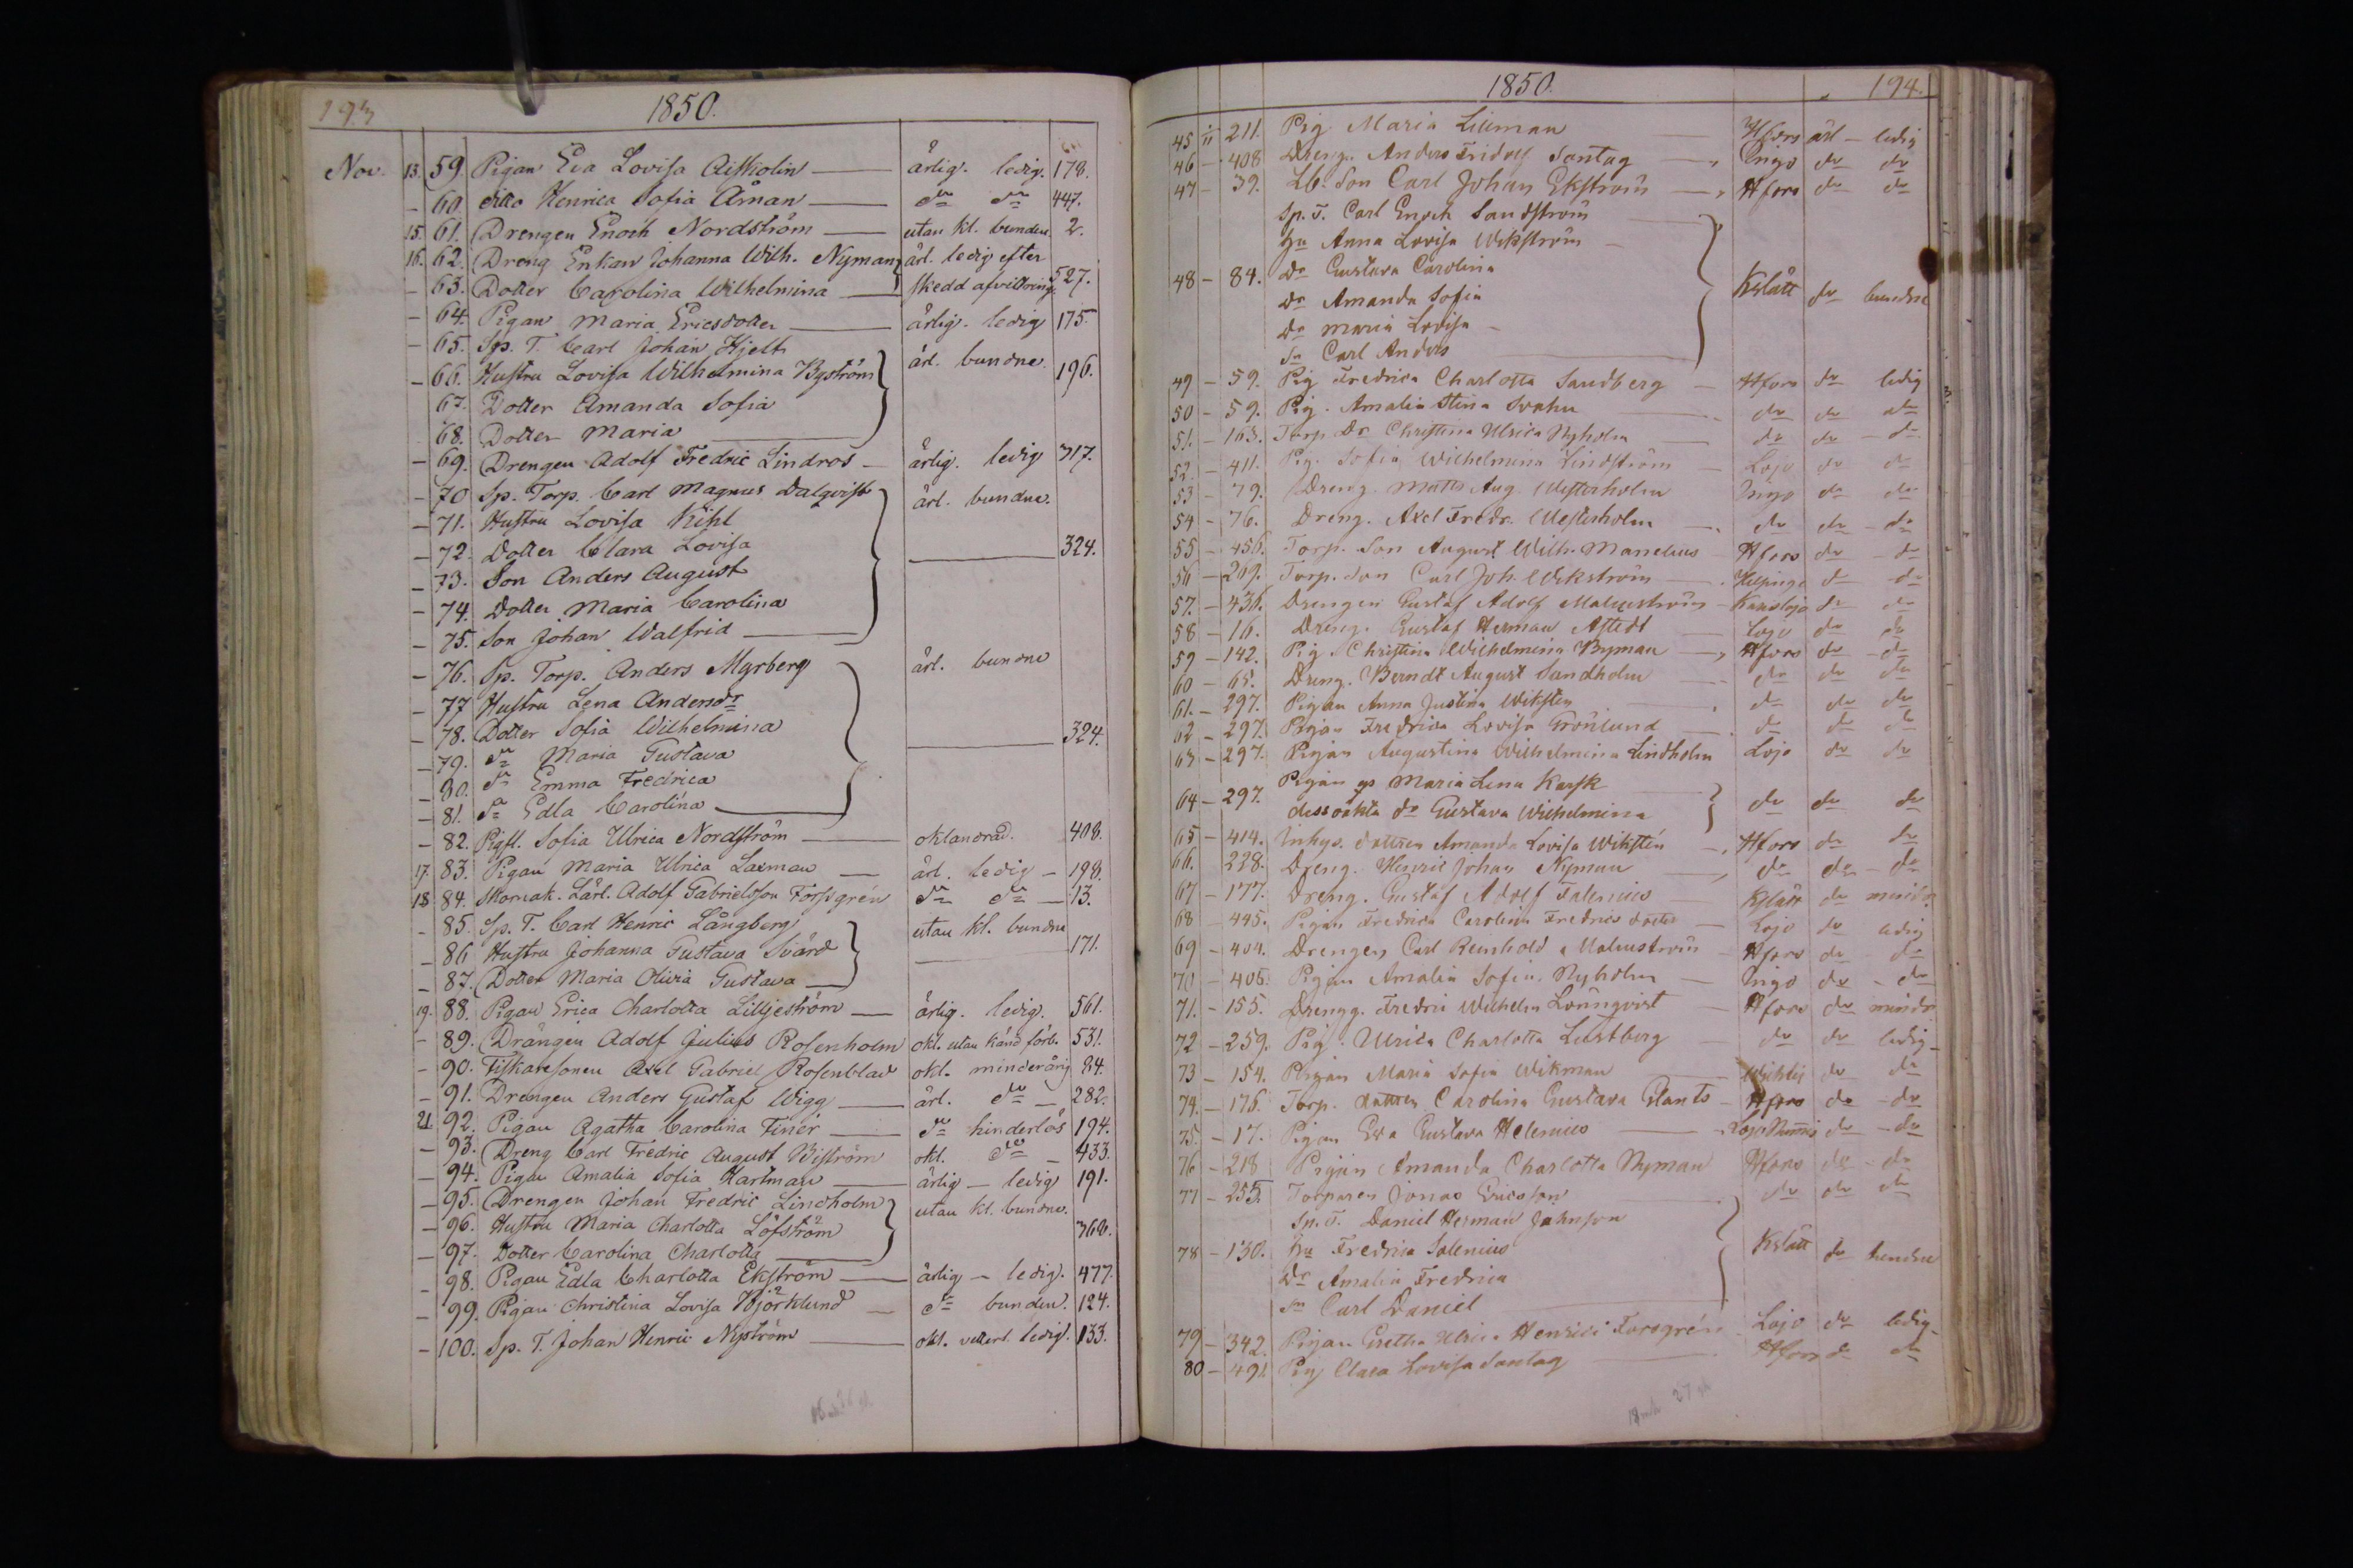 193
1850.
Nov. 13. 59. Pigan Eva Lovisa Aitholin — ärlig. ledig. 178.
– 60. ditto Henrica Sofia Åman — do do 447.
15. 61. Drengen Enoch Nordström — utan kl. bunden 2.
16. 62. Dreng Enkan Johanna Wilh. Nyman ärl. ledig efter
– 63. Dotter Carolina Wilhelmina — skedd afvittring. 527.
– 64. Pigan Maria Ericsdotter — ärlig. ledig 175.
– 65. Sp. T. Carl Johan Hjelt
– 66. Hustru Lovisa Wilhelmina Byström ärl. bundne. 196.
67. Dotter Amanda Sofia
68. Dotter Maria —
– 69. Drengen Adolf Fredric Lindros – ärlig. ledig 317.
– 70 Sp. Torp. Carl Magnus Dalqvist ärl. bundne.
– 71. Hustru Lovisa Kihl
– 72. Dotter Clara Lovisa — 324.
– 73. Son Anders August
– 74. Dotter Maria Carolina
– 75. Son Johan Walfrid —
– 76. Sp. Torp. Anders Myrberg ärl. bundne
– 77 Hustru Lena Andersdr
– 78. Dotter Sofia Wilhelmina — 324.
– 79. do Maria Gustava
– 80. do Emma Fredrica
– 81. do Edla Carolina —
– 82. Pigfl. Sofia Ulrica Nordström — oklandrad. 408.
17. 83. Pigan Maria Ulrica Laxman — ärl. ledig – 198.
18 84. Skomak. Lärl. Adolf Gabrielsson Forssgrén do do — 13.
– 85. Sp. T. Carl Henric Långberg utan kl. bundne
– 86 Hustru Johanna Gustava Svärd — 171.
– 87. Dotter Maria Olivia Gustava —
19. 88. Pigan Erica Charlotta Lilljeström — ärlig. ledig. 561.
– 89. Drängen Adolf Julius Rosenholm okl. utan känd förb. 531.
– 90. Fiskaresonen Axel Gabriel Rosenblad okl. minderårig 24.
– 91. Drengen Anders Gustaf Wigg — ärl. do — 282.
21 92. Pigan Agatha Carolina Tinér — do hinderlös 194.
– 93. Dreng Carl Fredric August Biström okl. do – 433.
– 94. Pigan Amalia Sofia Hartman — ärlig – ledig 191.
– 95. Drengen Johan Fredric Lindholm utan kl. bundne.
– 96. Hustru Maria Charlotta Löfström 368.
– 97. Dotter Carolina Charlotta —
– 98. Pigan Edla Charlotta Ekström — ärlig – ledig. 477.
– 99. Pigan Christina Lovisa Björklund — do bunden. 124.
– 100. Sp. T. Johan Henric Nyström — okl. ledig. 133.
1850. 194.
45 11 211. Pig Maria Liliman — Hfors ärl – ledig
46 – 408 Dreng. Anders Fridolf Sontag — Ingo do do
47 – 39. Lb. Son Carl Johan Ekström — Hfors do do
Sp. T. Carl Enoch Sandström
Hu Anna Lovisa Wikström
48 – 84. Dr Gustava Carolina Kslätt do bundne
Dr Amanda Sofia
Dr Maria Lovisa
Sn Carl Anders
49 – 59. Pig Fredrica Charlotta Sandberg — Hfors do ledig
50 – 59. Pig. Amalia Stina Svahn — do do do
51. – 163. Torp. Dr Christina Ulrica Nyholm — do do – do
52. – 411. Pig. Sofia Wilhelmina Lindström — Lojo do do
53 – 79. Dreng. Matts Aug. Westerholm Ingo do do
54 – 76. Dreng. Axel Fredr. Westerholm — do do – do
55 – 456. Torp. Son August Wilh. Manelius Hfors do – do
56 – 209. Torp. Son Carl Joh. Wikström — Helsinge do – do
57. – 436. Drengen Gustaf Adolf Malmström – Karislojo do do
58 – 16. Dreng. Gustaf Herman Alstedt — Lojo do do
59 – 142. Pig. Christina Wilhelmina Byman — Hfors do – do
60 – 65. Dreng. Berndt August Sandholm — do do do
61. – 297. Pigan Anna Justina Wiksten do do do
62 – 297. Pigan Fredrica Lovisa Grönlund — do do do
63 – 297. Pigan Augustina Wilhelmina Lindholm Lojo do do
Pigan Maria Lena Karsk
64 – 297. dess oäkta dr Gustava Wilhelmina do do do
65 – 414. Inhys. dottren Amanda Lovisa Wikstén Hfors do do
66. – 228. Dreng. Henric Johan Nyman — do do – do
67 – 177. Dreng. Gustaf Adolf Falenius Kslätt do
68 – 445. Pigan Fredrica Carolina Fredricsdotter — Lojo do ledig
69 – 404. Drengen Carl Reinhold Malmström Hfors do do
70 – 406. Pigan Amalia Sofia Nyholm — Ingo do – do
71. – 155. Drengg. Fredric Wilhelm Lönnqvist — Hfors do
72 – 259. Pig. Ulrica Charlotta Lustberg — do do ledig
73 – 154. Pigan Maria Sofia Wikman Wichtis do do
74. – 176. Torp. dottren Carolina Gustava Glants – Hfors do – do
75. – 17. Pigan Eva Gustava Helenius — do – do
76 – 218 Pigan Amanda Charlotta Nyman Hfors do – do
77 – 255. Torparen Jonas Ericsson do do do
Sp. T. Daniel Herman Johnson
78 – 130. Hu Fredrica Salenius Kslätt do bundne
Dr Amalia Fredrica
Sn Carl Daniel
79 – 342. Pigan Gretha Ulrica Henrici Forsgrén Lojo do ledig
80 – 491. Pig Clara Lovisa Sontag — Hfors do do